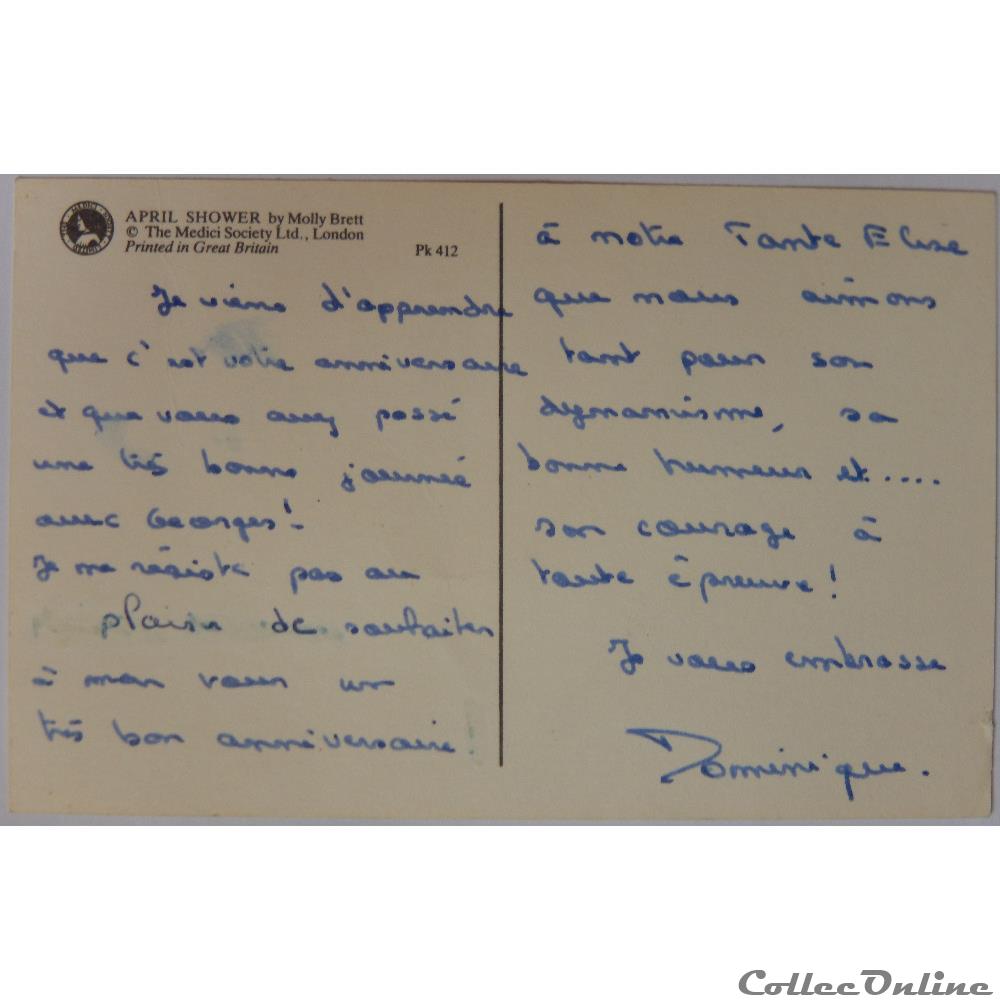 APRIL SHOWER by Molly Brett
© The Medici Society Ltd., London
Printed in Great Britain
Pk 412
Je viens d'apprendre
que c'est votre anniversaire
et que vous avez passé
une très bonne journée
avec Georges!
Je ne résiste pas au
plaisir de souhaiter
à mon tour un
très bon anniversaire!
à notre Tante Elise
que nous aimons
tant pour son
dynamisme, sa
bonne humeur et....
son courage à
toute épreuve!
Je vous embrasse
Dominique.
CollecOnline